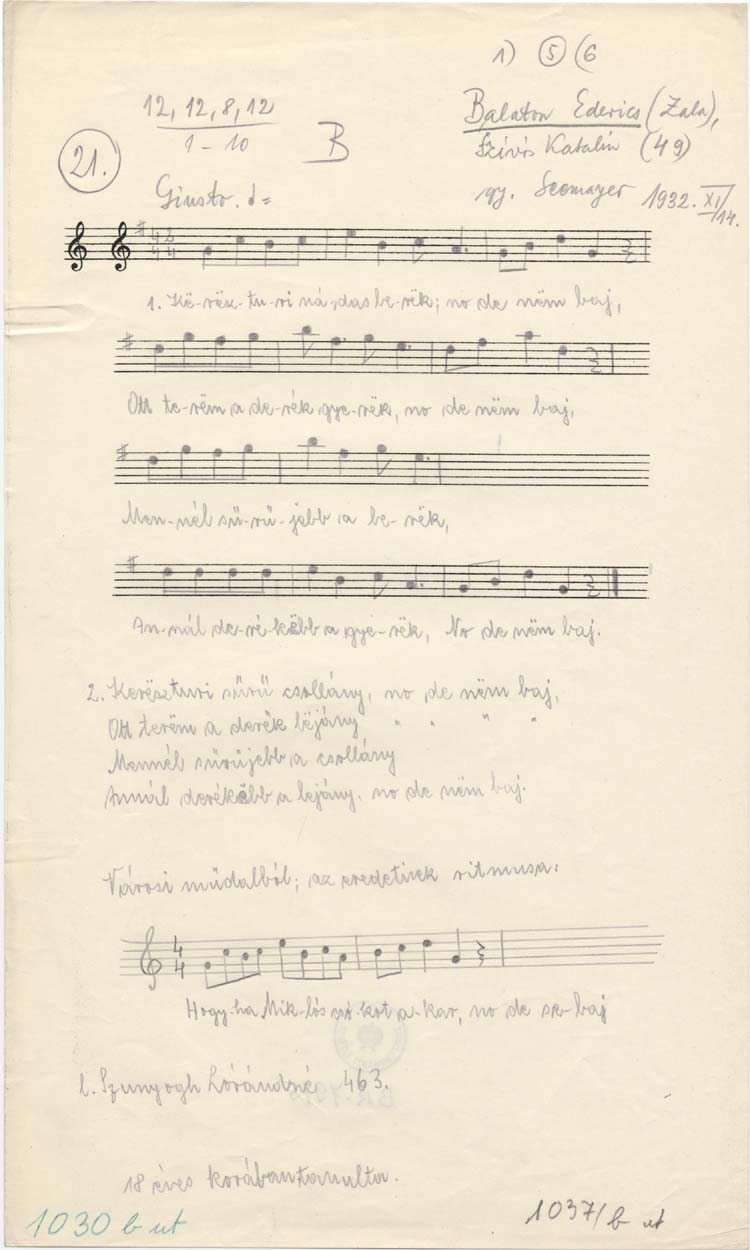 1) 5 (6
12, 12, 8, 12
1 - 10
B
Balaton Ederics (Zala),
Szívós Katalin (49)
gy. Seemayer 1932. XI/14.
21.
Giusto. =
4 2
4 4
1. Kë-rësz-tu-ri ná-das be-rëk; no de nëm baj,
Ott te-rëm a de-rék gye-rëk, no de nëm baj,
Men-nél sű-rű-jebb a be-rëk,
An-nál de-ré-këbb a gye-rëk, No de nëm baj.
2. Kerëszturi sűrű csollány, no de nëm baj,
Ott terëm a derék lëjány " " " "
Mennél sűrűjebb a csollány
Annál derékëbb a lejány, no de nëm baj.
Városi műdalból; az eredetinek ritmusa:
4
4
Hogy-ha Mik-lós só-kot a-kar, no de se-baj
l. Szunyogh Lórándné 463.
18 éves korában tanulta.
1030 b ut
1037/b ut